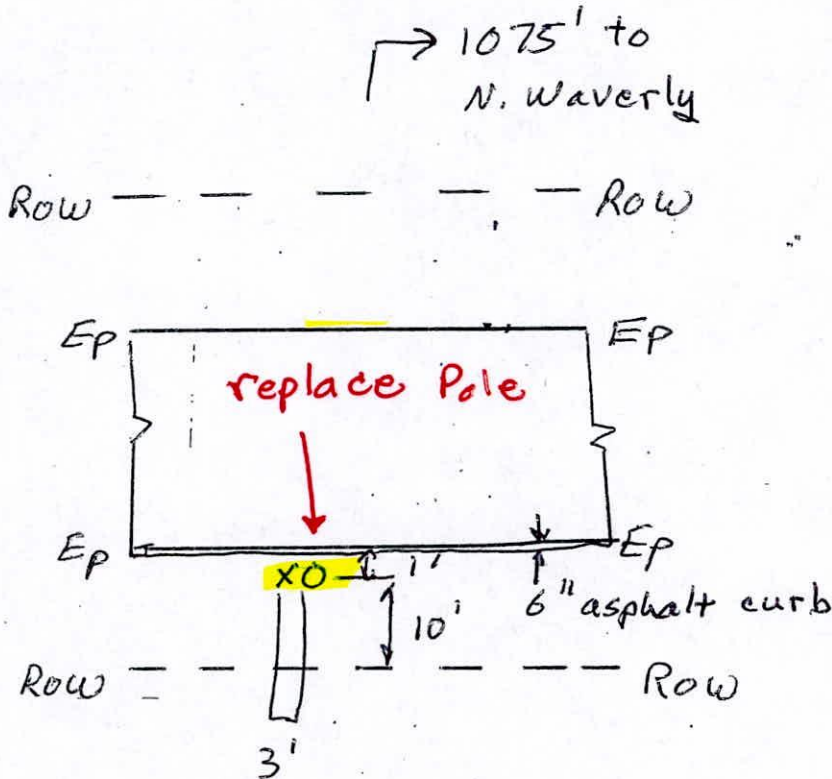 1075' to
N. Waverly
Row Row
Ep Ep
replace Pole
Ep Ep
XO 1'
10' 6" asphalt curb
Row Row
3'